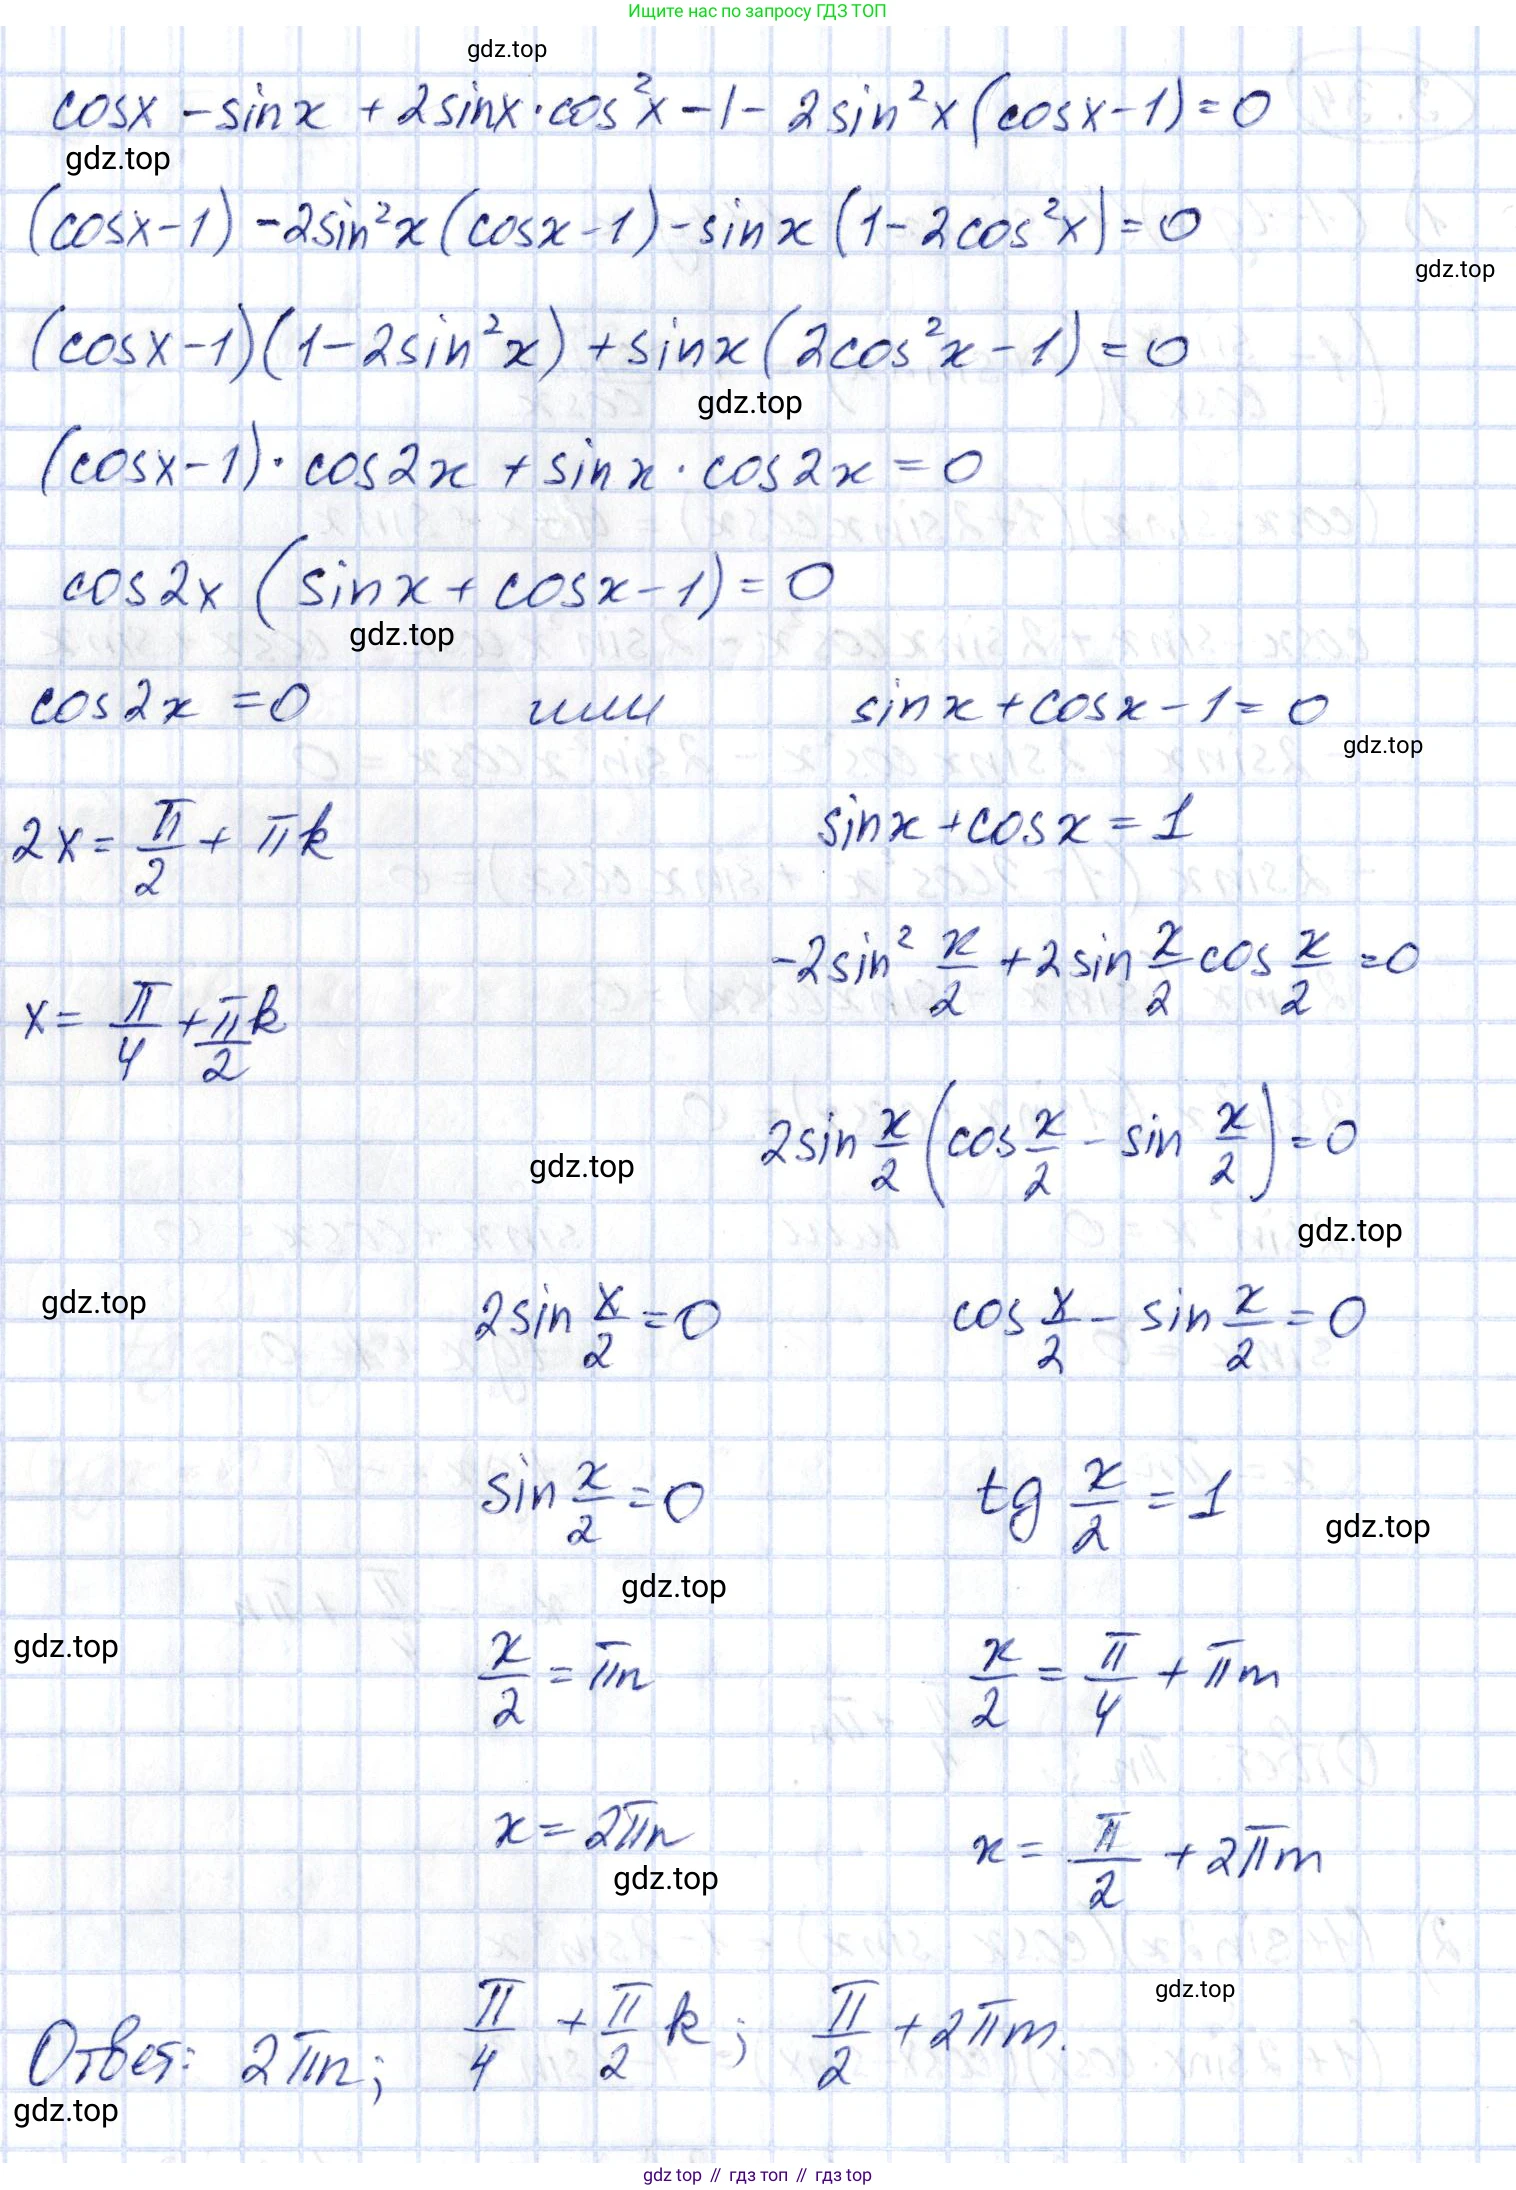 Ищите нас по запросу ГДЗ ТОП
gdz.top
cosx - sinx + 2sinx·cos²x - 1 - 2sin²x(cosx - 1) = 0
gdz.top
(cosx - 1) - 2sin²x(cosx - 1) - sinx(1 - 2cos²x) = 0
gdz.top
(cosx - 1)(1 - 2sin²x) + sinx(2cos²x - 1) = 0
gdz.top
(cosx - 1)·cos2x + sinx·cos2x = 0
cos2x (sinx + cosx - 1) = 0
gdz.top
cos2x = 0 или sinx + cosx - 1 = 0
gdz.top
2x = π/2 + πk sinx + cosx = 1
-2sin² x/2 + 2sin x/2 cos x/2 = 0
x = π/4 + π/2 k
2sin x/2 (cos x/2 - sin x/2) = 0
gdz.top
gdz.top
gdz.top
2sin x/2 = 0 cos x/2 - sin x/2 = 0
sin x/2 = 0 tg x/2 = 1
gdz.top
gdz.top
gdz.top
x/2 = πn x/2 = π/4 + πm
x = 2πn x = π/2 + 2πm
gdz.top
gdz.top
Ответ: 2πn; π/4 + π/2 k; π/2 + 2πm.
gdz.top
gdz.top // гдз топ // гдз top